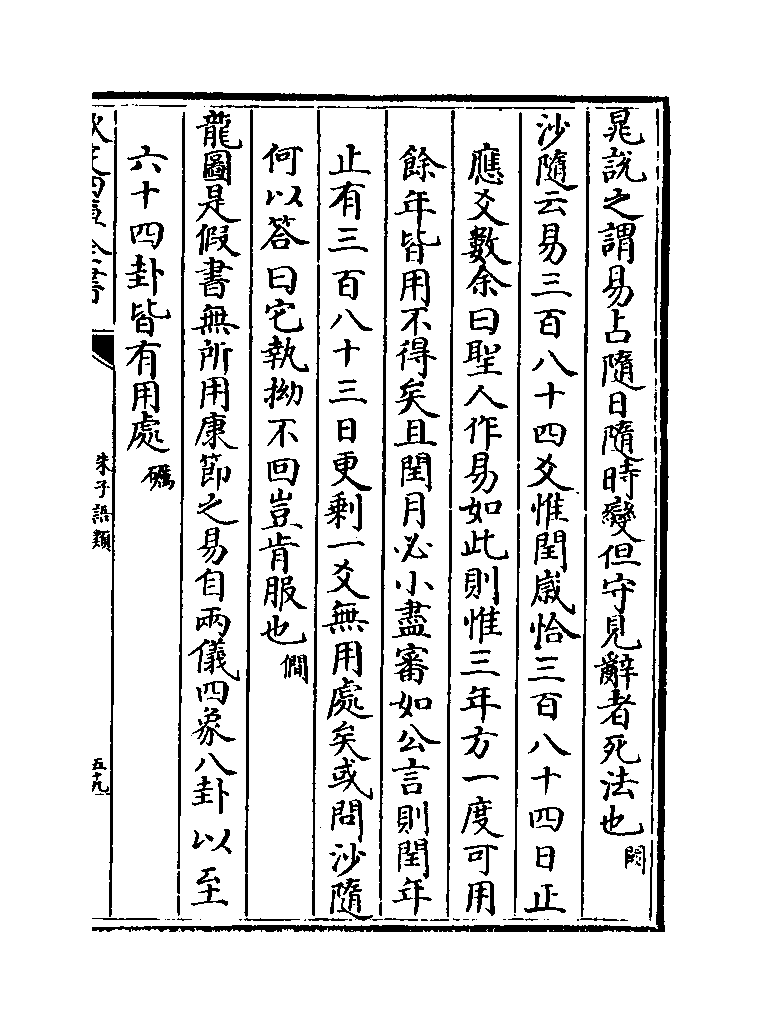 晁說之謂易占隨日隨時變但守見辭者死法也閎
沙隨云易三百八十四爻惟閏歲恰三百八十四日正
應爻數余曰聖人作易如此則惟三年方一度可用
餘年皆用不得矣且閏月必小盡審如公言則閏年
止有三百八十三日更剩一爻無用處矣或問沙隨
何以答曰它執拗不回豈肯服也僩
龍圖是假書無所用康節之易自兩儀四象八卦以至
六十四卦皆有用處礪
欽定四庫全書
朱子語類
五十九